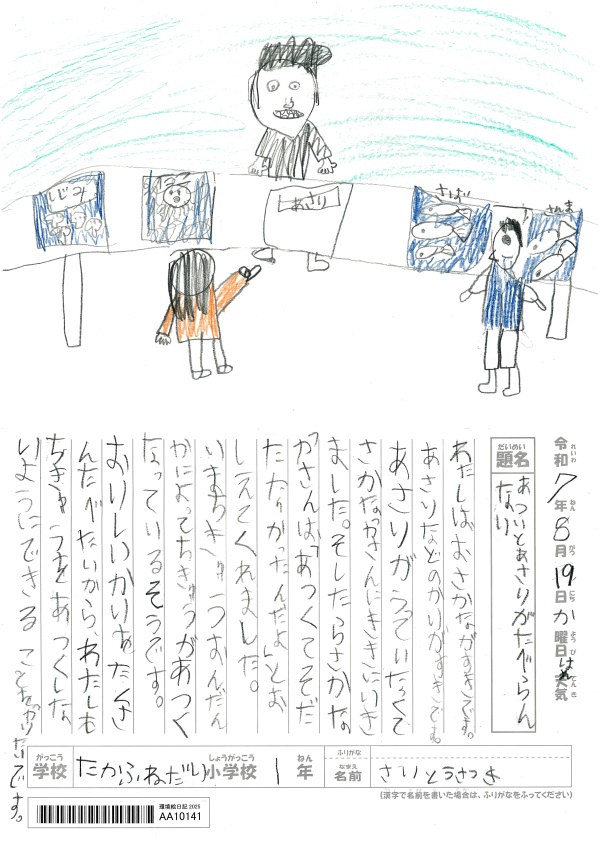 しじみ
あさり
さんま
れいわ ねん がつ にち ようび てんき
令和7年8月19日か曜日はれ天気
だいめい
題名
あついとあさりがたべらん
なり
わたしはおさかながすきです。
あさりなどのかいがすきです。
あさりがうっていなくて
さかなやさんにききにいき
ました。そしたらさかなや
さんは、「あつくてそだ
たなかったんだよ」とお
しえてくれました。
いまちきゅうおんだん
かによってちきゅうがあつく
なっているそうです。
おいしいかいをたくさ
んたべたいから、わたしも
ちきゅうをあつくしな
いようにできることをがり
たいです。
がっこう しょうがっこう ねん
学校 たかふねだい小学校 1年
ふりがな
なまえ
名前 さいとうさつき
(漢字で名前を書いた場合は、ふりがなをふってください)
環境絵日記 2025
AA10141